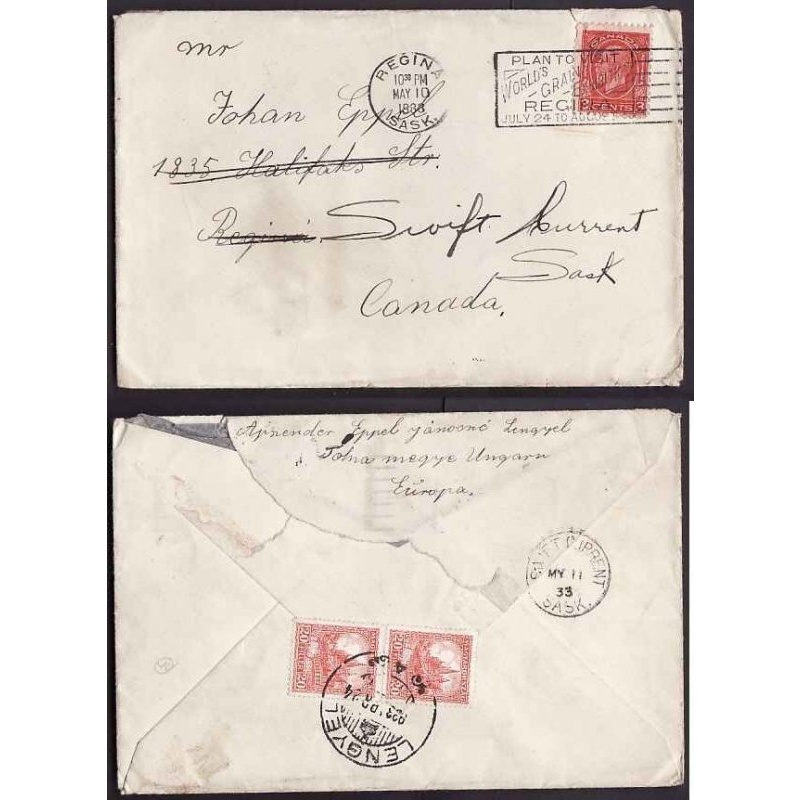 Mr
Johan Eppel
1835. Halifaks Str.
Regina. Swift Current
Sask
Canada,
REGINA
10 30 PM
MAY 10
1933
SASK.
PLAN TO VISIT
WORLD'S
GRAIN
REGINA
JULY 24 TO AUGUST
CANADA
3 CENTS 3
Apsender Eppel Jánosné Lengyel
Tolna megye Ungarn
Europa.
SWIFT CURRENT
MY 11
33
SASK.
20
20
20
20
LENGYEL